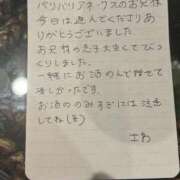 バリバリアネックスのお兄様
今日は遊んでくださりあり
がとうございました。
お兄様の息子大きくてびっ
くりしました。
一緒にお酒のんで捨てて
楽しかったです。
お酒ののみすぎには注意
してね(笑)